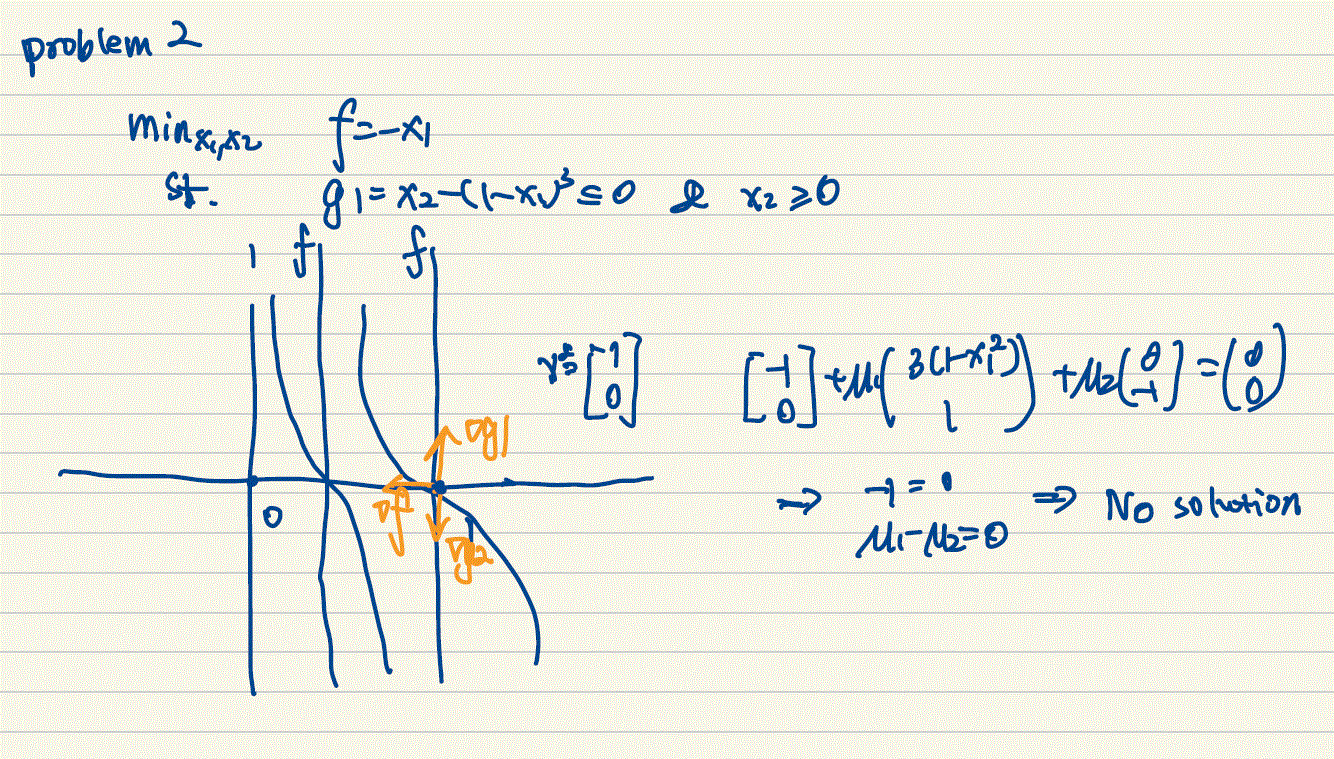 problem 2
min x1,x2 f=-x1
st. g1=x2-(1-x1)^3≤0 & x2≥0
1 f f
[-1 0] [-1 0]+μ1(3(1-x1^2) 1)+μ2(0 -1]=(0 0)
∇g1
0 ∇f ∇g2
→ -1=0
μ1-μ2=0 ⇒ No solution